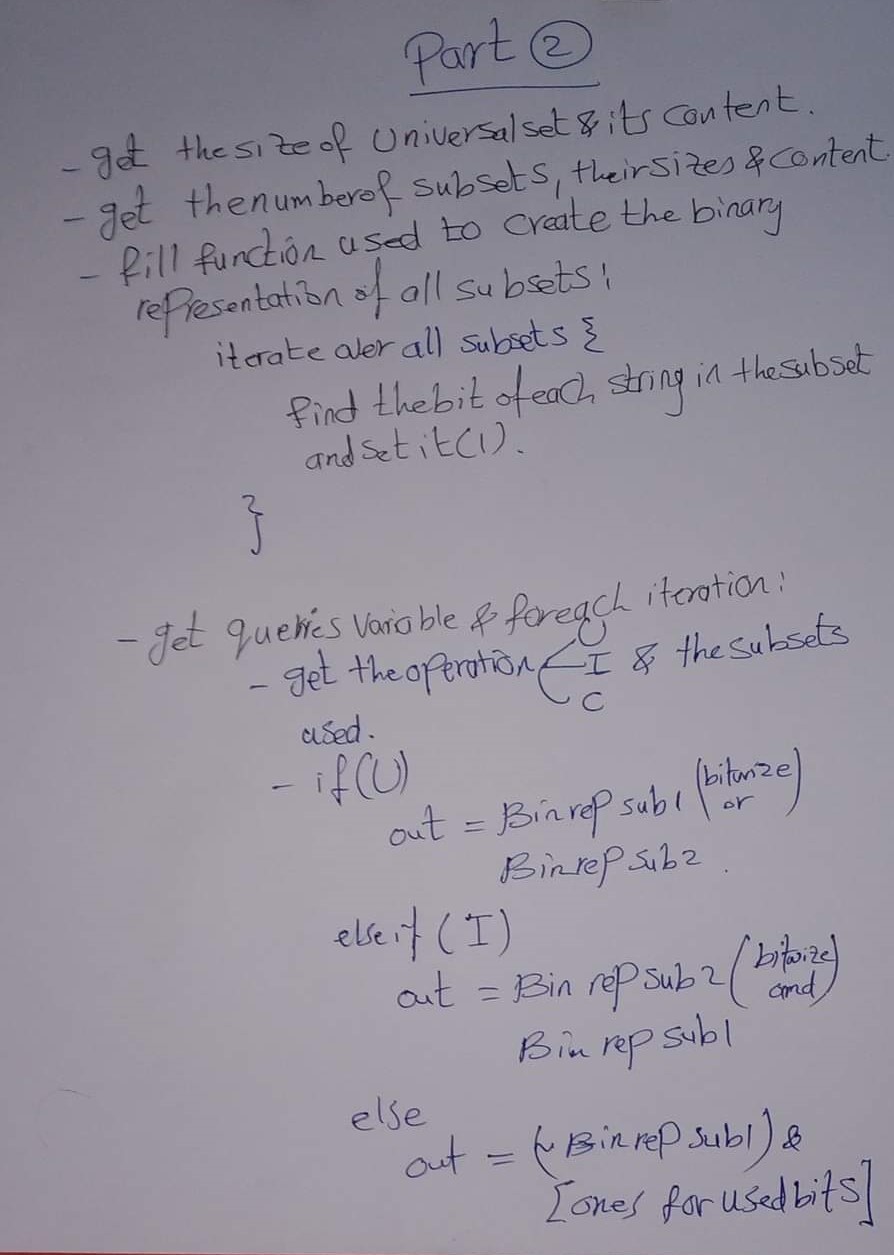 Part ②
- get the size of Universal set & its content.
- get the number of subsets, their sizes & content.
- fill function used to create the binary
representation of all subsets:
iterate over all subsets {
find the bit of each string in the subset
and set it (1).
}
- get queries variable & foreach iteration:
- get the operation U I C & the subsets
used.
- if (U)
out = Bin rep sub1 (bitwize or)
Bin rep sub2.
else if (I)
out = Bin rep sub2 (bitwize and)
Bin rep sub1
else
out = (~ Bin rep sub1) &
[ones for used bits]